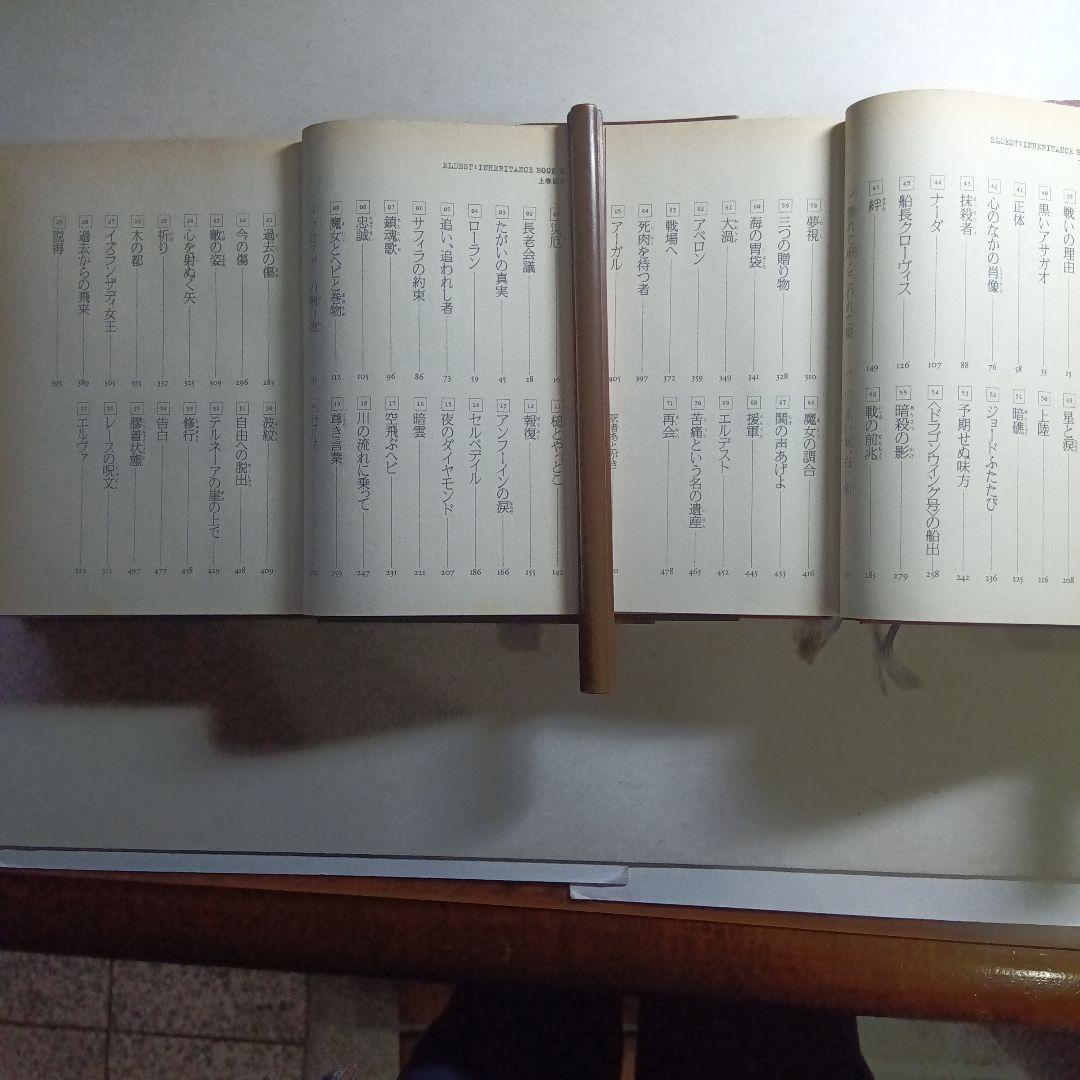 ELDEST:INHERITANCE BOOK
上巻
災厄 16
02 長老会議 28
03 たがいの真実 45
04 ローラン 59
05 追い、追われし者 73
06 サフィラの約束 86
07 鎮魂歌 96
08 忠誠 105
09 魔女とヘビと巻物 112
槌とやっとこ 142
12 報復 155
13 アンフーインの涙 166
14 セルベデイル 186
15 夜のダイヤモンド 207
16 暗雲 221
17 空飛ぶヘビ 231
18 川の流れに乗って 247
19 尊き言葉 259
20 セリス
21 過去の傷 283
22 今の傷 296
23 敵の姿 309
24 心を射ぬく矢 325
25 祈り 337
26 木の都 355
27 イズランザディ女王 365
28 過去からの飛来 389
29 説得 395
30 波紋 409
31 自由への脱出 418
32 テルネーアの崖の上で 429
33 修行 458
34 告白 477
35 膠着状態 497
36 レースの呪文 513
37 エルヴァ 523
ELDEST:INHERITANCE B
38 黒いアサガオ
39 戦いの理由 15
40 黒いアサガオ 35
41 正体 58
42 心のなかの肖像 76
43 抹殺者 88
44 ナーダ 107
45 船長クローヴィス 126
46 絆 149
49 星と涙 208
50 上陸 216
51 暗礁 225
52 ジョードふたたび 236
53 予期せぬ味方 242
54 〈ドラゴンウイング号〉の船出 258
55 暗殺の影 279
56 戦の前兆 285
58 夢視 310
59 三つの贈り物 328
60 海の胃袋 341
61 大渦 349
62 アベロン 359
63 戦場へ 372
64 死肉を待つ者 397
65 アーガル 405
66 魔女の調合 416
67 鬨の声あげよ 433
68 援軍 445
69 エルデスト 452
70 苦痛という名の遺産 465
71 再会 478
訳者あとがき